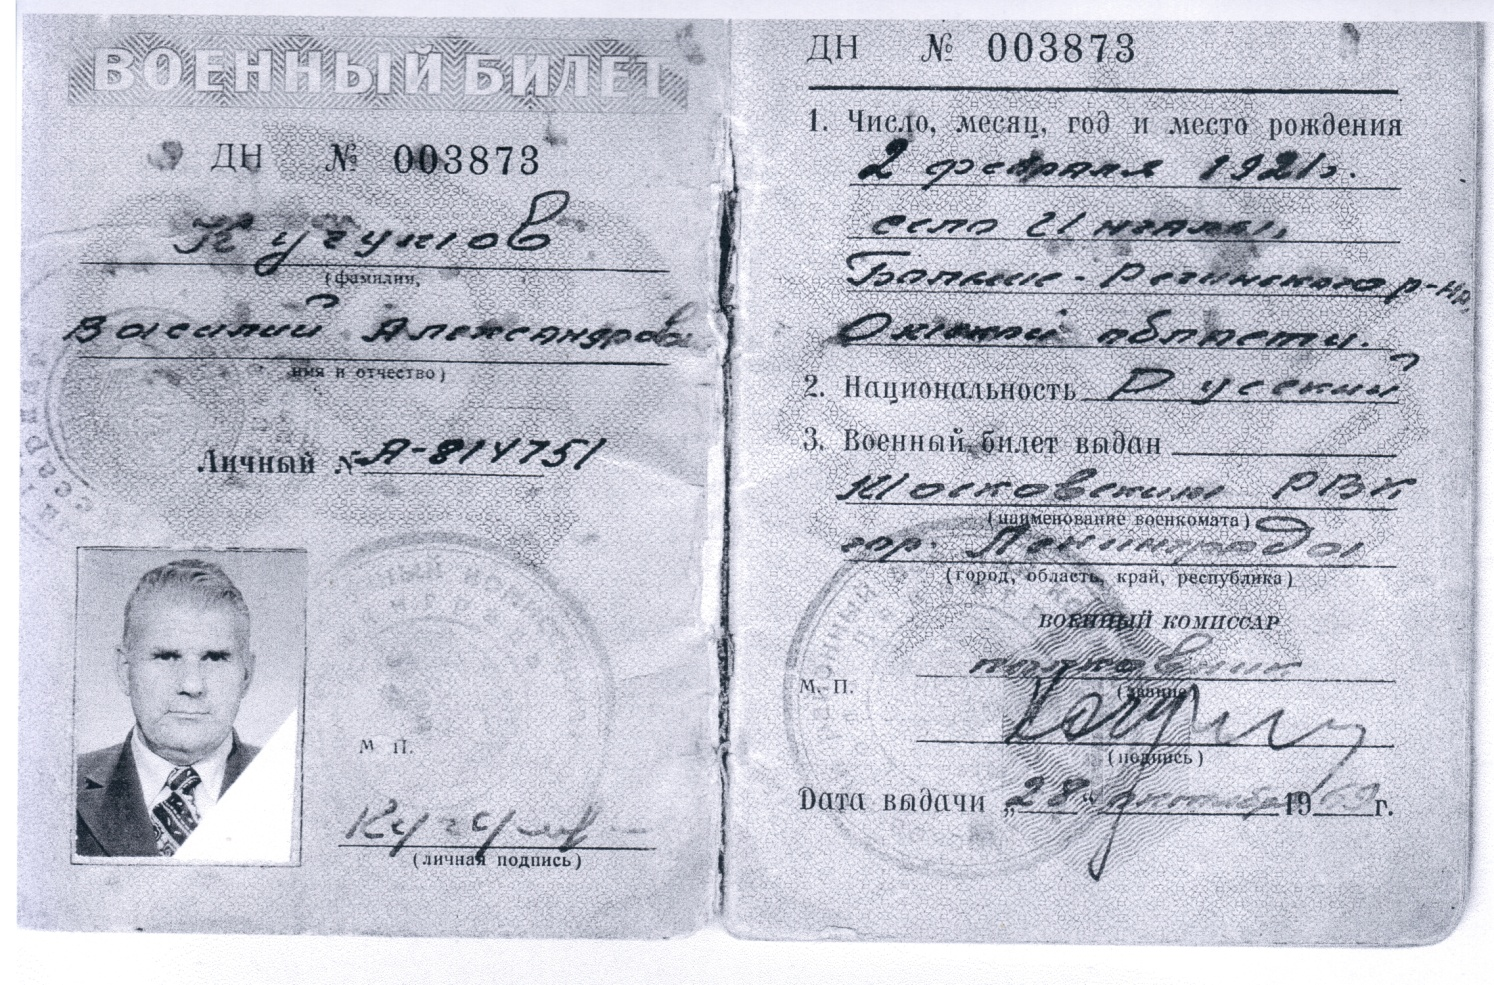 ВОЕННЫЙ БИЛЕТ
ДН № 003873
(фамилия,
Василий Александрович
имя и отчество)
Личный № А-814751
М П.
(личная подпись)
ДН № 003873
1. Число, месяц, год и место рождения
2 февраля 1921г.
село
Больше-Реченского р-на,
Омской области.
2. Национальность Русский
3. Военный билет выдан
Московским РВК
(наименование военкомата)
гор. Ленинграда
(город, область, край, республика)
ВОЕННЫЙ КОМИССАР
полковник
(звание)
М. П.
(подпись)
Дата выдачи „28“ октября 1969 г.